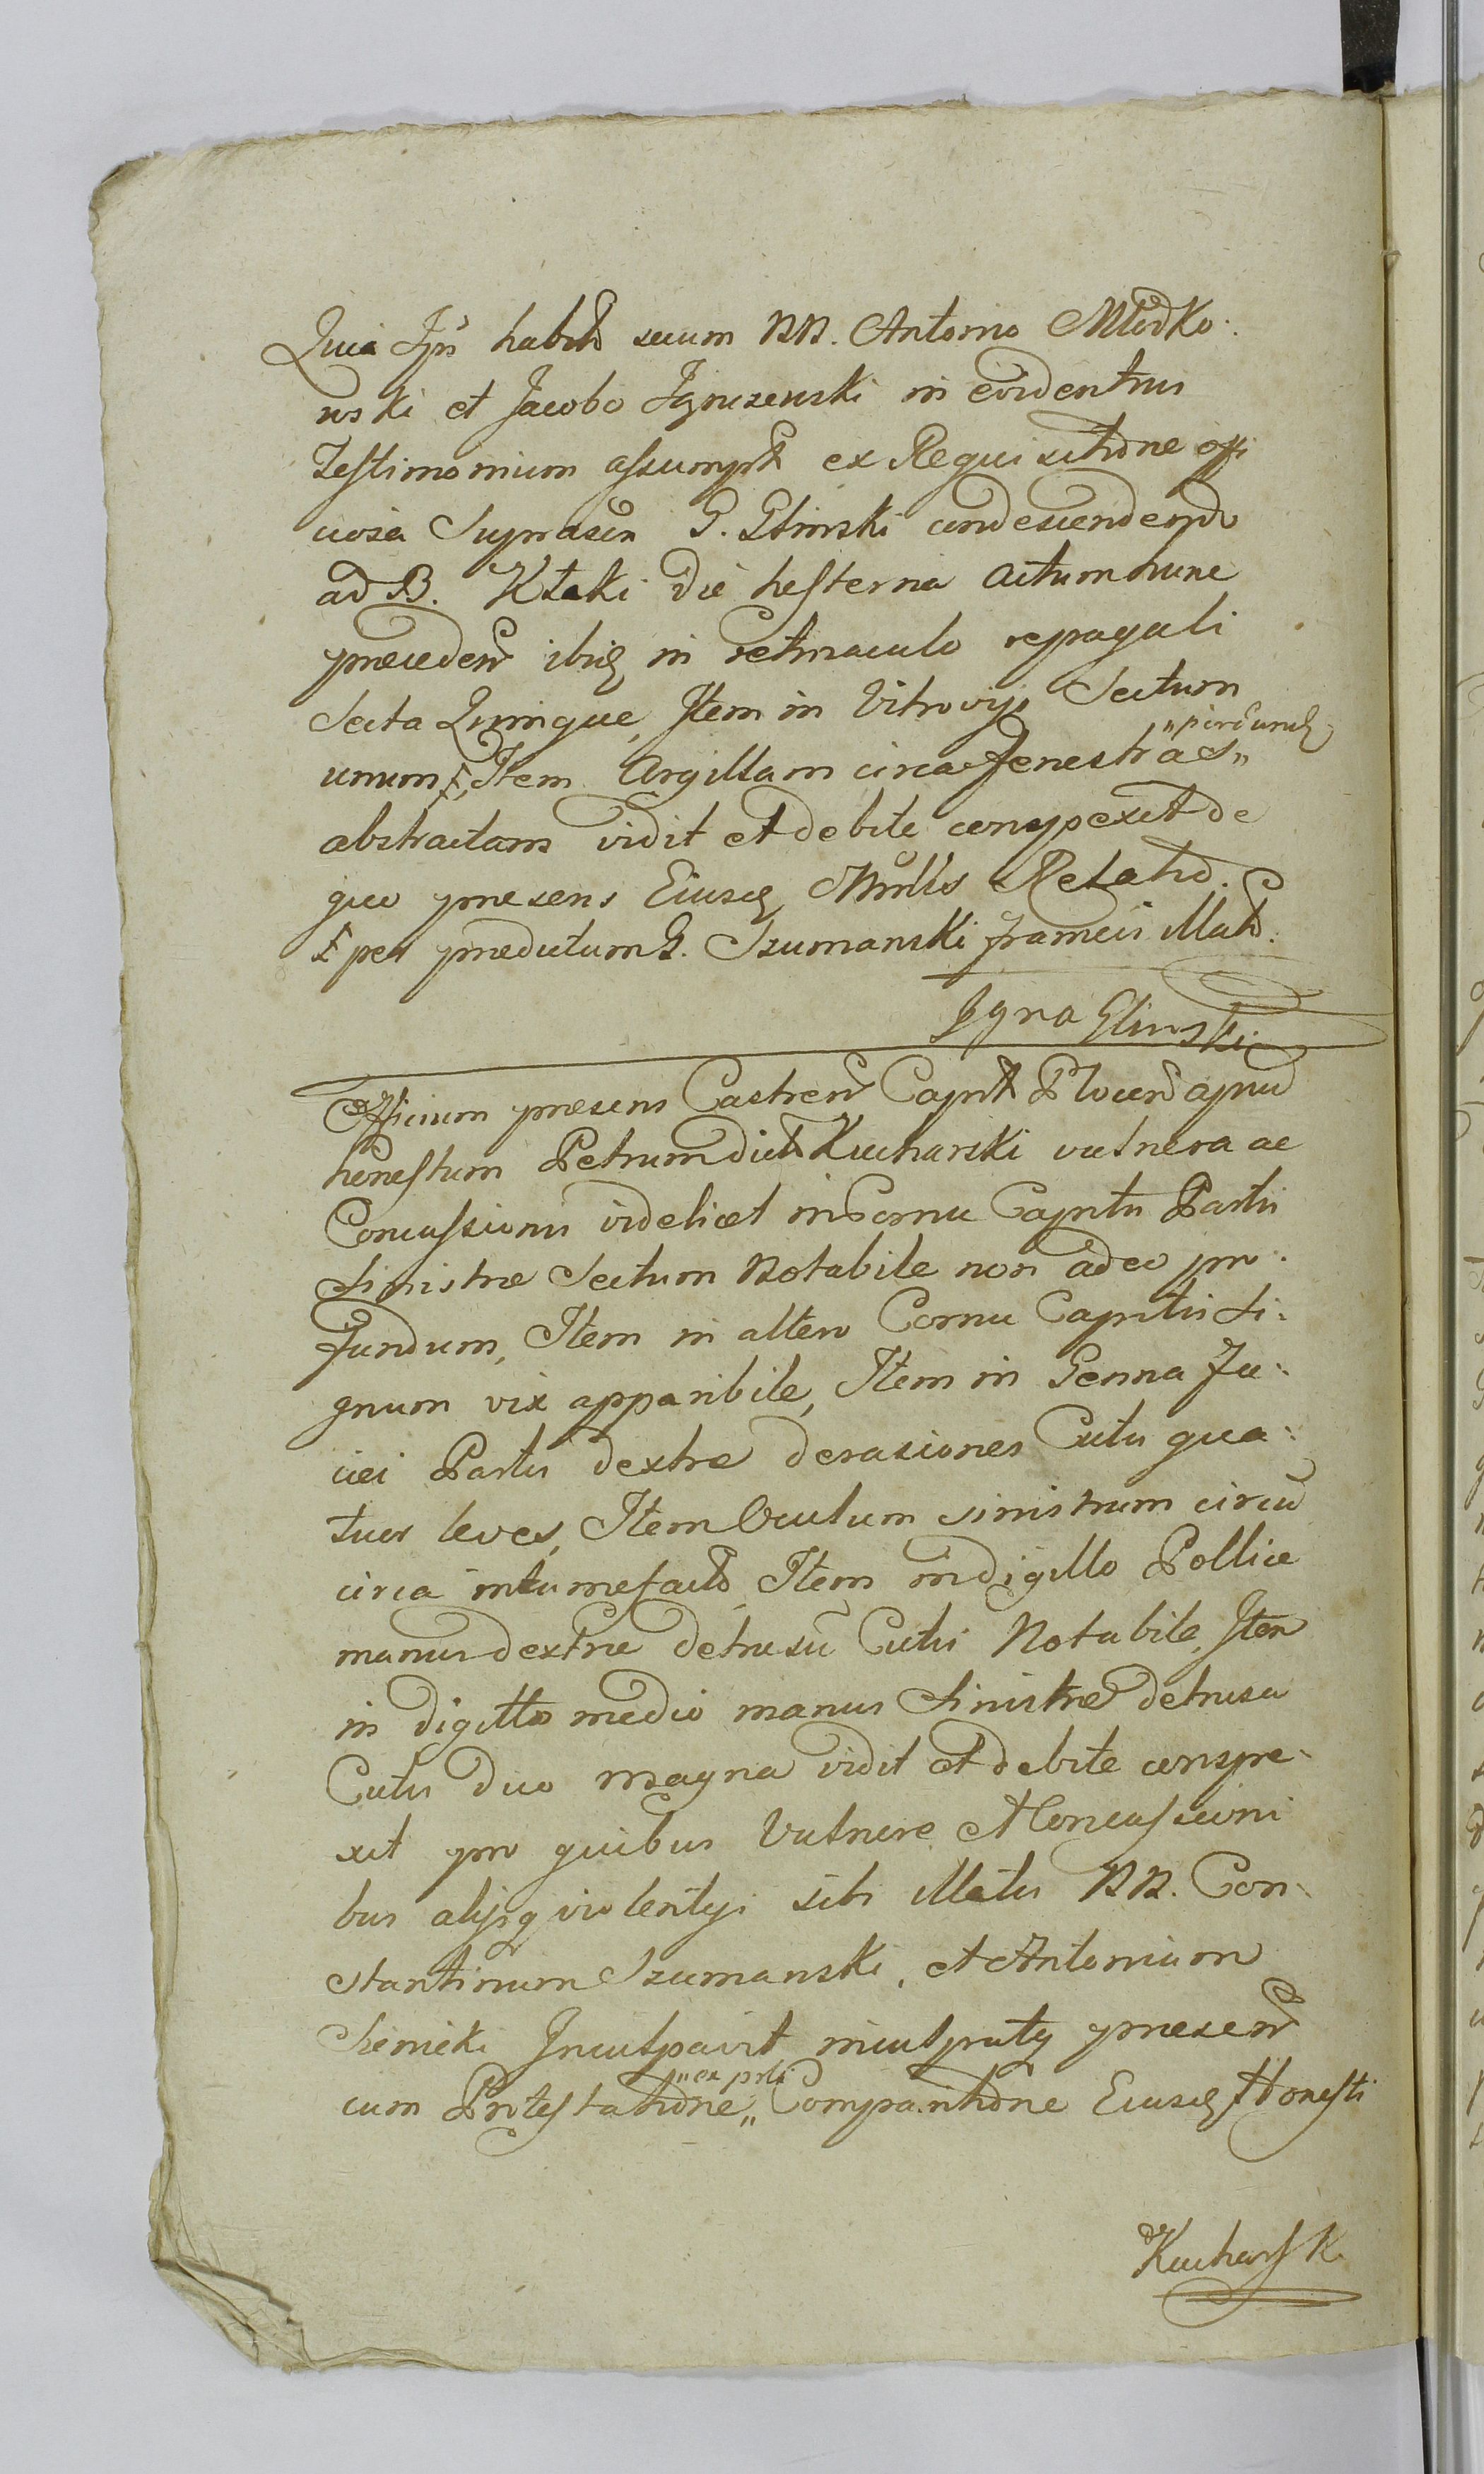 Quia Ips habitis secum NN. Antonio Młodko:
wski et Jacobo Zgniszewski in evidentius
Testimonium assumptis ex Requisitione offi
ciosa Suprascr G. Glinski condescendendo
ad B. Kłaki die hesterna actum hunc
preceden ibiq in retinaculo repaguli
Secta Quinque, Item in Vitro viso Sectum
unum Ŧ, Item Argillam circa fenestras „
abstractam vidit et debite conspexit de
quo presens Eiusq Mnllis Relatio.
Ŧ per predictum G. Szumanski frameis illata.
Igna Glinski
Officium presens Castren Capitle Plocen apud
honestum Petrum dictum Kucharski vulnera ac
Concussiones videlicet in Cornu Capitis Partis
sinistre Sectum Notabile non adeo pro:
fundum, Item in altero Cornu Capitis Si:
gnum vix apparibile, Item in Genna Fa:
ciei Partis dextre derasiones Cutis qua:
tuor leves, Item Oculum sinistrum circum
circa intumefactum, Item in digitto Pollice
manus dextre detrusum Cutis Notabile, Item
in digitto medio manus Sinistre detrusa
Cutis duo magna vidit et debite conspe:
xit pro quibus Vulnere et Concussioni
bus alijsq violentijs sibi illatis NN. Con
stantinum Szumanski, et Antonium
Inculpavit inculpatq presen
cum Protestatione „ex prti„ Comparitione Eiusq Honesti
Kucharsk